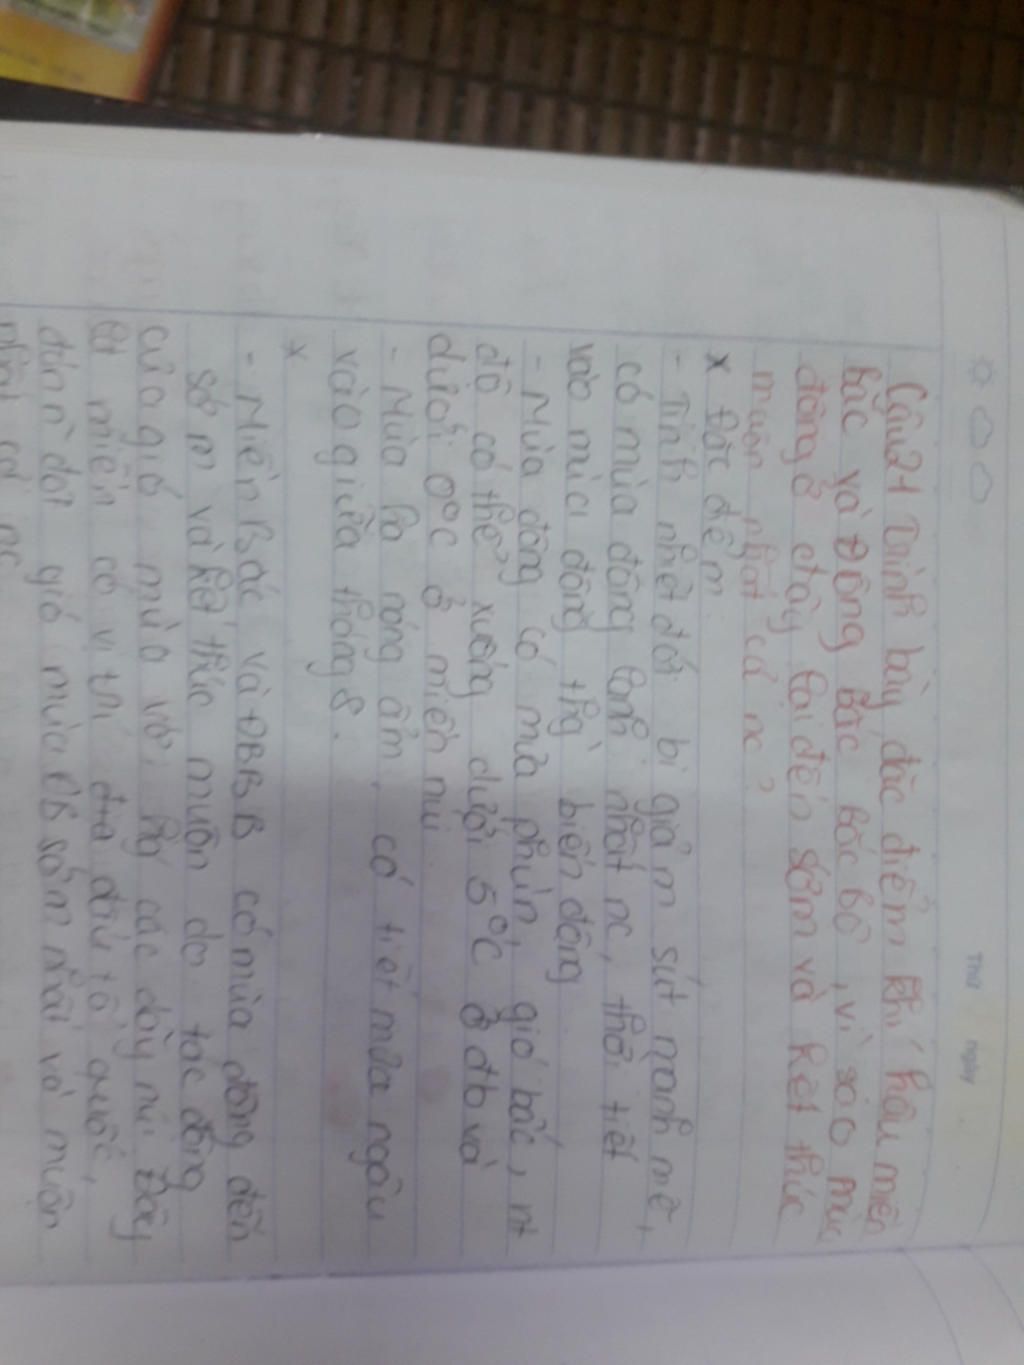 Thứ ngày
Câu 21 Trình bày đặc điểm khí hậu miền
Bắc và Đông Bắc Bắc Bộ, vì sao mùa
đông ở đây lại đến sớm và kết thúc
muộn nhất cả nc?
x Đặc điểm.
- Tính nhiệt đới bị giảm sút mạnh mẽ,
có mùa đông lạnh nhất nc, thời tiết
vào mùa đông thg` biến động
- Mùa đông có mưa phùn, gió bấc, nt
độ có thể xuống dưới 5°C ở đb và
dưới 0°C ở miền núi.
- Mùa hạ nóng ẩm, có tiết mưa ngâu
vào giữa tháng 8.
x
- Miền Bắc và ĐBBB có mùa đông đến
sớm và kết thúc muộn do tác động
của gió mùa với các dãy núi Đây
là miền có vị trí địa đầu tổ quốc,
đón đợt gió mùa ĐB sớm nhất và muộn
nhất cả nc